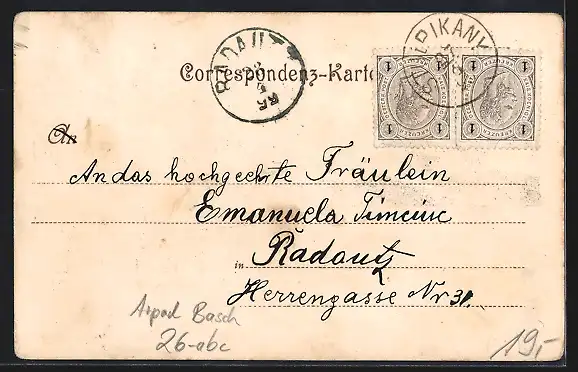 RADAUTZ
Correspondenz-Karte
An
An das hochgeehrte Fräulein
Emanuela
in Radautz
Herrengasse Nr 31.
Arpad Basch
26-abc
19,-
1 1 1 1